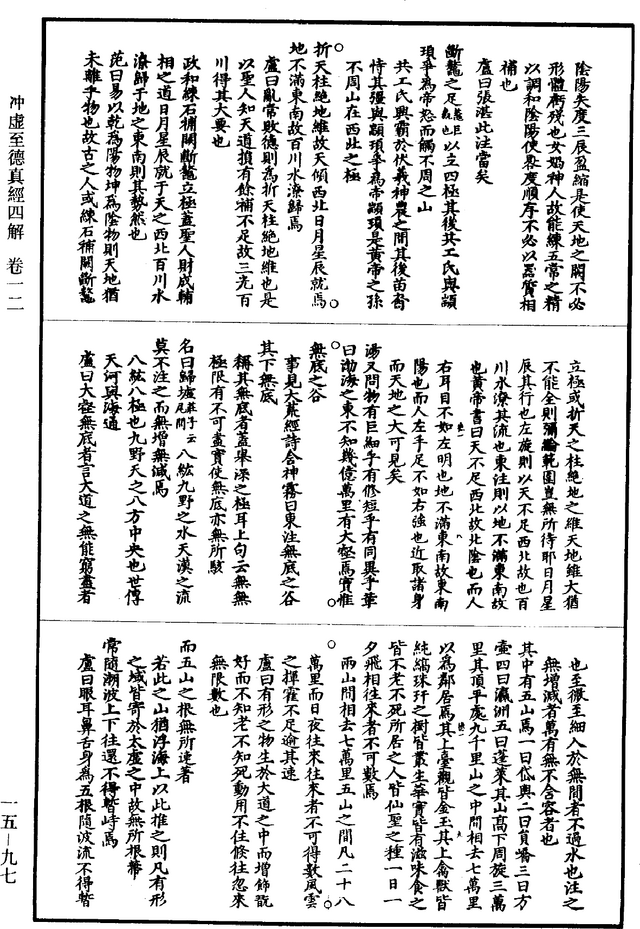 陰陽失度三辰盈縮是使天地之闕不必
形體虧殘也女媧神人故能練五常之精
以調和陰陽使晷度順序不必以器質相
補也
盧曰張湛此注當矣
斷鼇之足鼇巨龜也以立四極其後共工氏與顓
頊爭為帝怒而觸不周之山
共工氏興霸於伏羲神農之間其後苗裔
恃其彊與顓頊爭為帝顓頊是黃帝之孫
不周山在西北之極
折天柱絕地維故天傾西北日月星辰就焉
地不滿東南故百川水潦歸焉
盧曰亂常敗德則為折天柱絕地維也是
以聖人知天道損有餘補不足故三光百
川得其大要也
政和練石補闕斷鼇立極蓋聖人財成輔
相之道日月星辰就于天之西北百川水
潦歸于地之東南則其勢然也
范曰易以乾為陽物坤為陰物則天地猶
未離乎物也故古之人或練石補闕斷鼇
沖虛至德真經四解 卷一二
一五—九七
立極或折天之柱絕地之維天地雖大猶
不能全則彌綸範圍豈無所待耶日月星
辰其行也左旋則以天不足西北故也百
川水潦其流也東注則以地不滿東南故
也黃帝書曰天不足西北故北陰也而人
右耳目不如左明也地不滿東南故東南
陽也而人左手足不如右強也近取諸身
而天地之大可見矣
湯又問物有巨細乎有修短乎有同異乎革
曰渤海之東不知幾億萬里有大壑焉實惟
無底之谷
事見大荒經詩含神霧曰東注無底之谷
其下無底
稱其無底者蓋舉深之極耳上句云無無
極限有不可盡實使無底亦無所駭
名曰歸墟莊子云尾閭八紘九野之水天漢之流
莫不注之而無增無減焉
八紘八極也九野天之八方中央也世傳
天河與海通
盧曰大壑無底者言大道之無能窮盡者
也至微至細入於無間者不過水也注之
無增減者萬有無不含容者也
其中有五山焉一曰岱輿二曰員嶠三曰方
壺四曰瀛洲五曰蓬萊其山高下周旋三萬
里其頂平處九千里山之中間相去七萬里
以為鄰居焉其上臺觀皆金玉其上禽獸皆
純縞珠玕之樹皆叢生華實皆有滋味食之
皆不老不死所居之人皆仙聖之種一日一
夕飛相往來者不可數焉
兩山間相去七萬里五山之間凡二十八
萬里而日夜往來往來者不可得數風雲
之揮霍不足逾其速
盧曰有形之物生於大道之中而增飾翫
好而不知老不知死動用不住倏往忽來
無限數也
而五山之根無所連著
若此之山猶浮海上以此推之則凡有形
之域皆寄於太虛之中故無所根蔕
常隨潮波上下往還不得蹔峙焉
盧曰眼耳鼻舌身為五根隨波流不得蹔